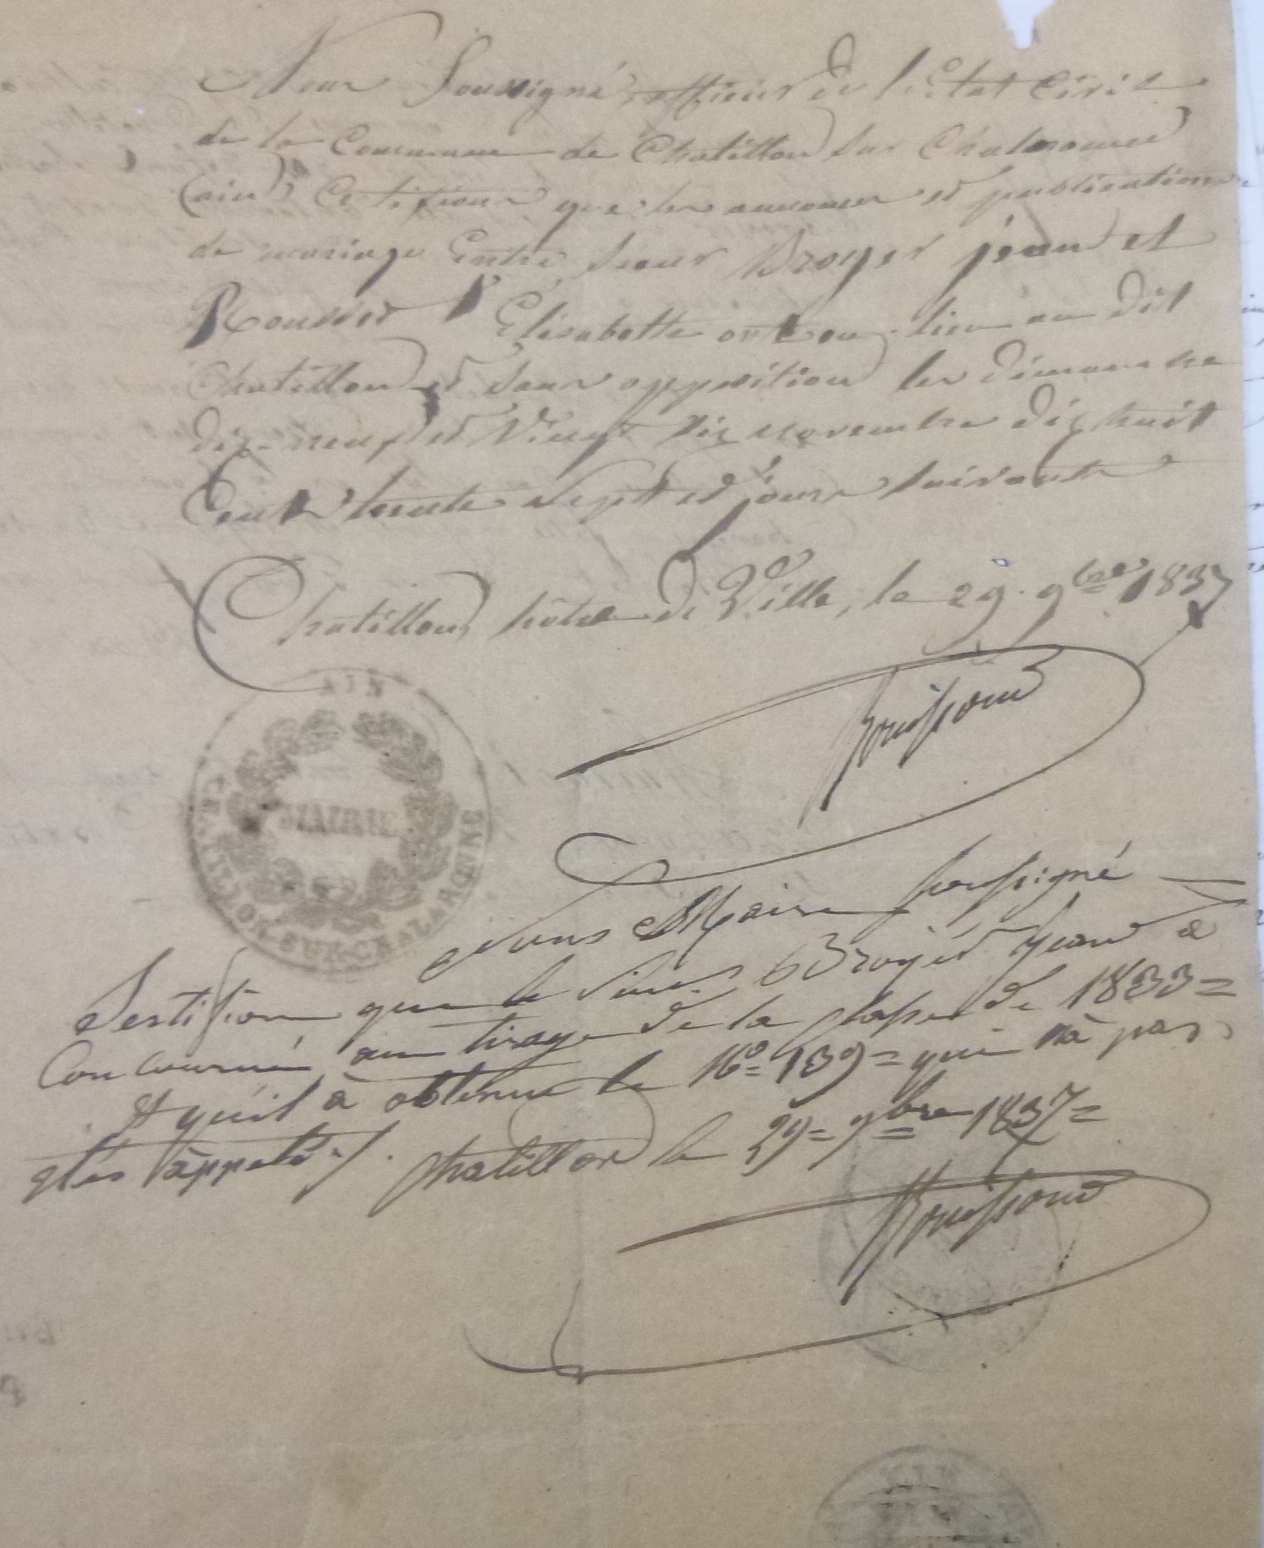 Nous Soussigné, officier de l'Etat Civil
de la Commune de Chatillon sur Chalaronne
(ain) Certifions que les annonces et publications
de mariage Entre sieur Broyer jean et
Rousset Elisabette ont eu lieu au dit
Chatillon et sans opposition les dimanche
dix-neuf et Vingt Six novembre dix huit
Cent trente sept et jours suivants
Chatillon, hôtel de Ville, le 29 9bre 1837
AIN
MAIRIE
CHATILLON-SUR-CHALARONNE
Nous Maire soussigné
Sertifion que le sieur Broyer Jean a
Concourué au tirage de la classe de 1833 =
et qu'il à obtenue le No = 139 = qui n'à pas
étés àppelé ./. Chatillon le 29 = 9bre 1837 =
AIN